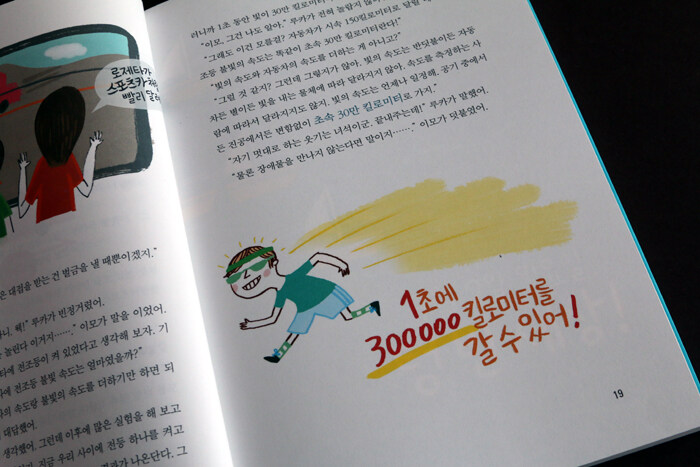 로제타가
스포츠카처럼
빨리 달려
은 대접을 받는 건 벌금을 낼 때뿐이겠지.”
니, 쳇!” 루카가 빈정거렸어.
놀린다 이거지……” 이모가 말을 이었어.
타에 전조등이 켜 있었다고 생각해 보자. 기
때 전조등 불빛의 속도는 얼마였을까?”
의 속도랑 불빛의 속도를 더하기만 하면 되
대답했어.
생각했어. 그런데 이후에 많은 실험을 해 보고
지금 우리 사이에 전등 하나를 켜고
결과가 나온단다. 그
러니까 1초 동안 빛이 30만 킬로미터
“이모, 그건 나도 알아.” 루카가 전혀 놀라지 않
“그래도 이건 모를걸? 자동차가 시속 150킬로미터로 달릴 때
조등 불빛의 속도는 똑같이 초속 30만 킬로미터란다!”
“빛의 속도와 자동차의 속도를 더하는 게 아니고?”
“그럴 것 같지? 그런데 그렇지가 않아. 빛의 속도는 반딧불이든 자동
차든 별이든 빛을 내는 물체에 따라 달라지지 않아. 속도를 측정하는 사
람에 따라서 달라지지도 않지. 빛의 속도는 언제나 일정해. 공기 중에서
든 진공에서든 변함없이 초속 30만 킬로미터로 가지.”
“자기 멋대로 하는 웃기는 녀석이군. 끝내주는데!” 루카가 말했어.
“물론 장애물을 만나지 않는다면 말이지……” 이모가 덧붙였어.
1초에
300000 킬로미터를
갈 수 있어!
19